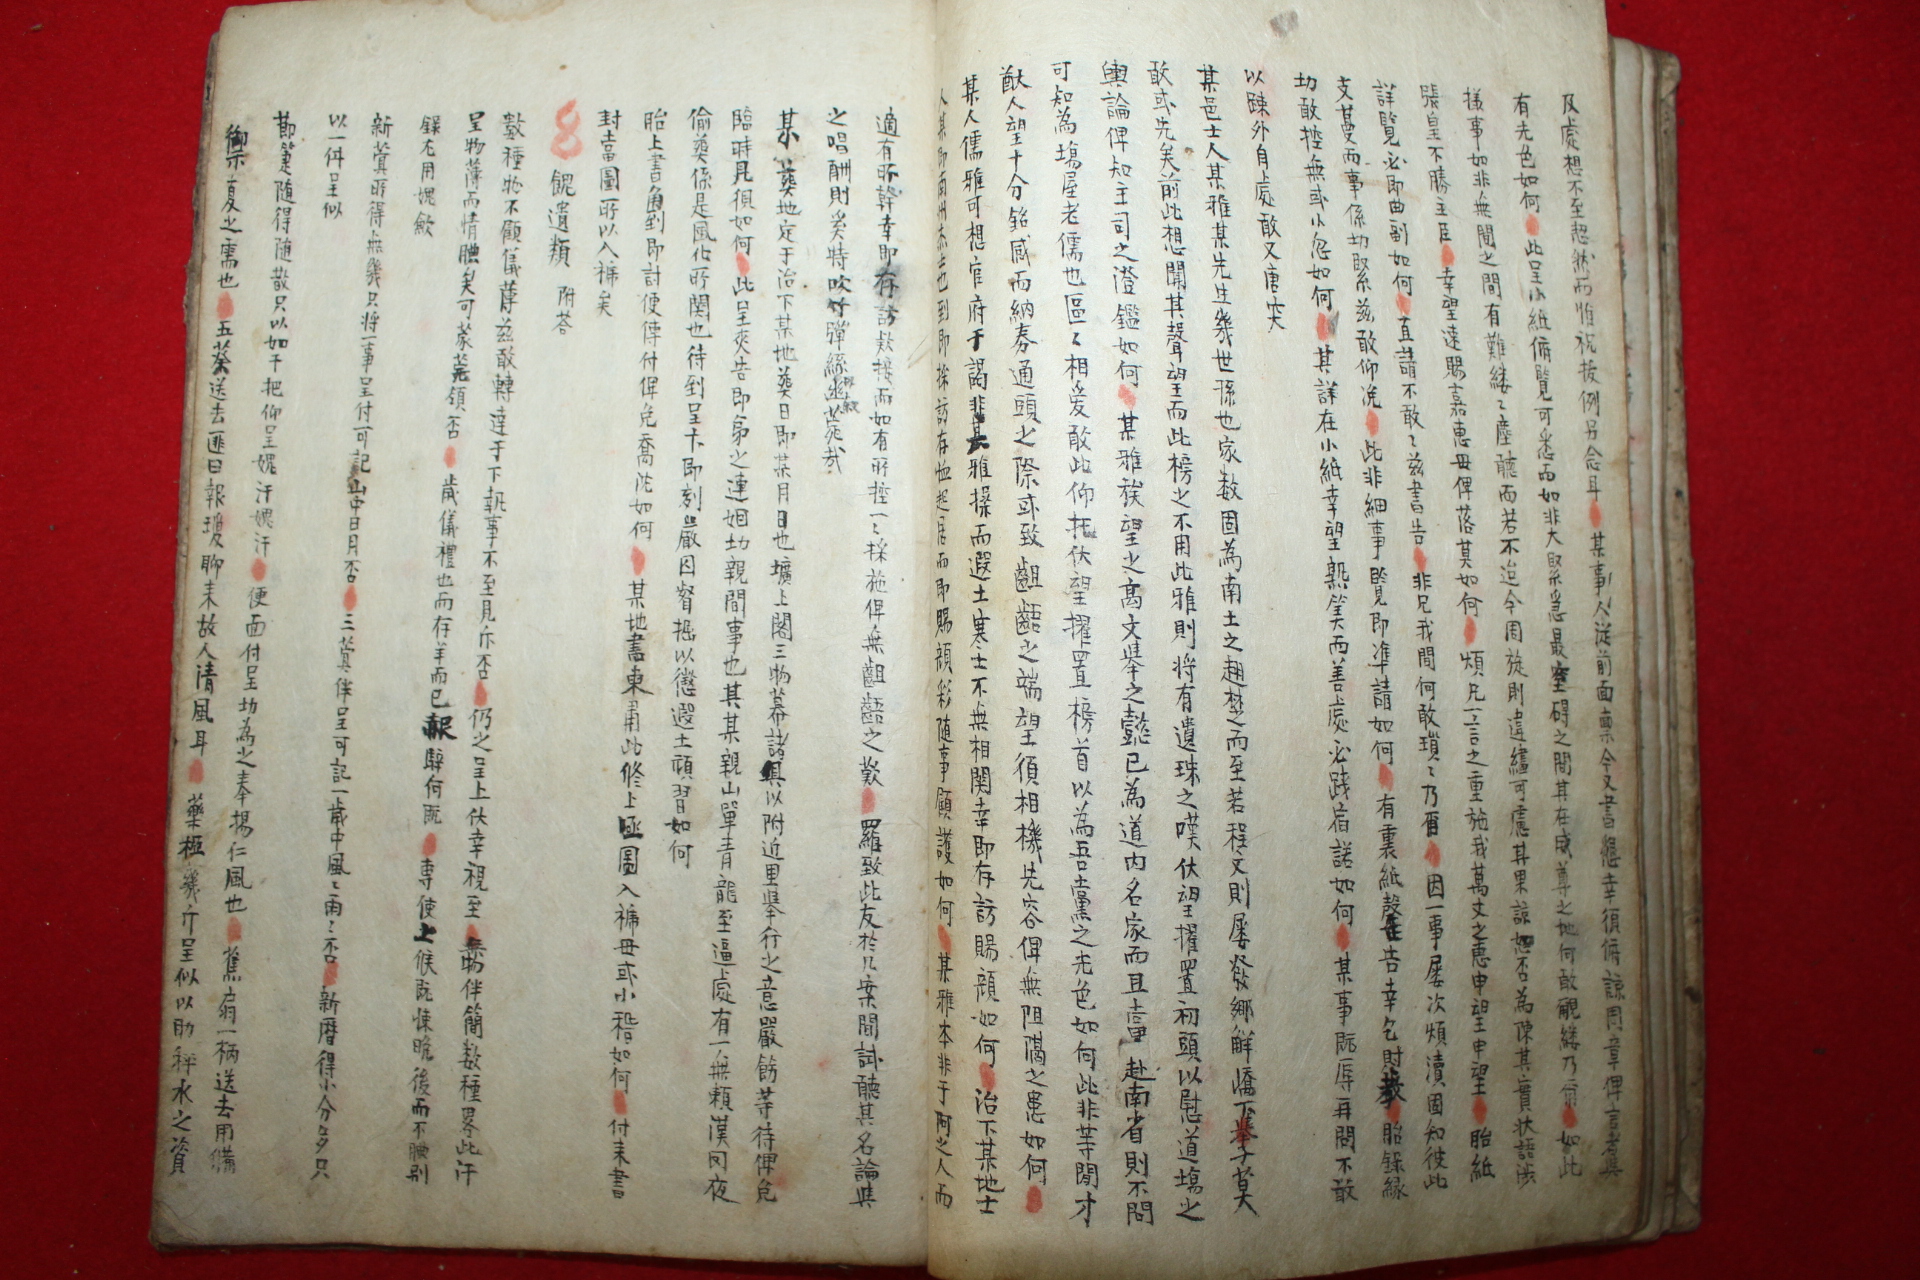 及處想不至恝然而惟祝拔例另念耳 某事人從前面稟今又書懇幸須俯諒周章俾言者其
有光色如何 此呈小紙俯覽可悉而如非大緊急最窒碍之間其在咸尊之地何敢覼縷乃爾 如此
樣事如非無間之間有難縷〻塵聽而若不迨今周旋則違繣可慮其果諒恕否為陳其實狀語涉
張皇不勝主臣 幸望遠賜嘉惠毋俾落莫如何 煩兄一言之重施我萬丈之惠申望申望 胎紙
詳覽必即曲副如何 直請不敢〻茲書告 非兄我間何敢瑣〻乃爾 因一事屡次煩瀆固知彼此
支蔓而事係切緊茲敢仰浼 此非細事覽即準請如何 有裏紙聲告幸乞財教 胎錄緣
切敢控無或小忽如何 其詳在小紙幸望熟筭而善處必踐宿諾如何 某事既辱再閱不敢
以踈外自處敢又唐突
某邑士人某雅某先生幾世孫也家数固為南土之趙楚之而至若程文則屡發鄉解嶠下擧子莫
敢或先矣前此想聞其聲望而此榜之不用此雅則将有遺珠之嘆伏望擢置初頭以慰道塲之
輿論俾知主司之澄鑑如何 某雅族望之高文擧之懿已為道内名家而且當赴南省則不問
可知為塲屋老儒也區〻相爱敢此仰托伏望擢置榜首以為吾黨之光色如何此非等閒才
猷人望十分銘感而納券通頭之際或致齟齬之端望須相機先容俾無阻隔之患如何
某人儒雅可想官府于謁非其雅操而遐土寒士不無相関幸即存訪賜顔如何 治下某地士
人某即南州杰士也到即採訪存恤起居而即賜顔彩随事顧護如何 某雅本非于阿之人而
適有所幹幸即存訪款接而如有所控一〻採施俾無齟齬之歎 羅致此友於几案間試聽其名論與
之唱酬則奚特吹竹彈絲
某 葬地定于治下某地葬日即某月日也壙上閣三物幕諸具以附近里擧行之意嚴飭等待俾免
臨時見狽如何 此呈夾告即弟之連姻切親間事也其某親山單青龍至逼處有一無頼漢罔夜
偷葬係是風化所関也待到呈卞即刻嚴囚督掘以懲遐土頑習如何
胎上書角到即討便傳付俾免喬沈如何 某地書柬肅此修上函圖入褫毋或小稽如何 付来書
封當圖所以入褫矣
餽遺類 附荅
數種物不顧儀薄茲敢轉達于下執事不至見斥否 仍之呈上伏幸視至 無物伴簡数種畧此汗
呈物薄而情腆矣可蒙莞領否 歲儀禮也而存羊而已報騂何既 専使上候既悚晩後而不腆别
錄尤用媿歉
新蓂昕得無幾只将一事呈付可記山中日月否 三蓂伴呈可記一歲中風〻雨〻否 新曆得小分多只
以一件呈似
節箑随得随散只以如干把仰呈媿汗媿汗 便面付呈切為之奉揚仁風也 蕉扇一柄送去用備
御夏之需也 五葵送去匪曰報瓊聊来故人清風耳 藥極幾斤呈似以助秤水之資